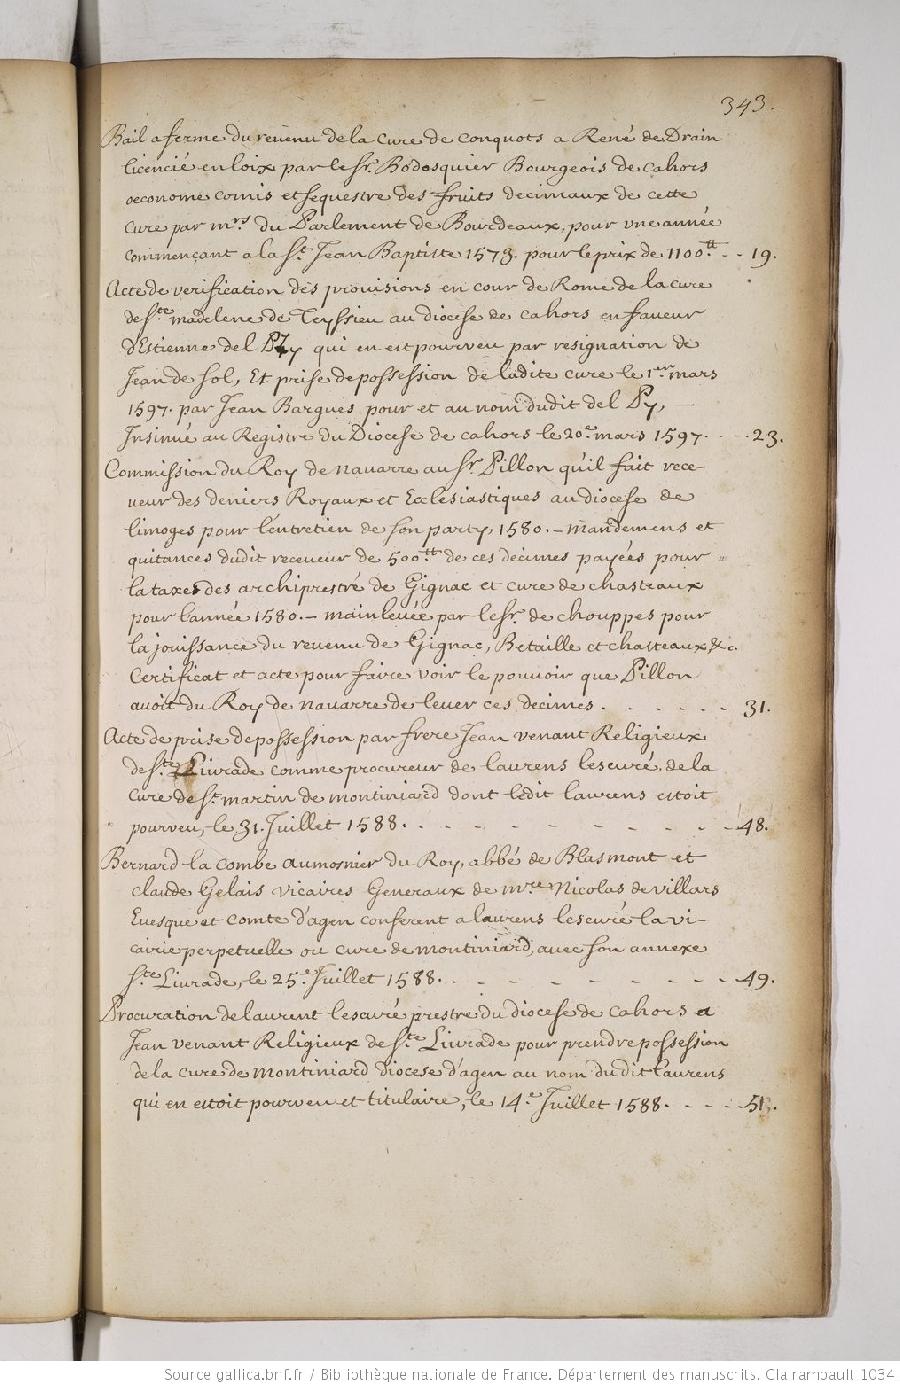 343.
Bail a ferme du reuenu de la Cure de Conquots a René de Drain
licencié en loix par le Sr. Bodosquier Bourgeois de Cahors
oeconome comis et sequestre des fruits decimaux de cette
Cure par mrs du Parlement de Bourdeaux, pour vne année
commençant a la St. Jean Baptiste 1573. pour le prix de 1100tt - - 19.
Acte de verification des prouisions en cour de Rome de la cure
de Ste madelene de Teyssieu au diocese de Cahors en faueur
d'Estienne del Py qui en est pourveu par resignation de
Jean de Sol, Et prise de possession de ladite cure le 1er mars
1597. par Jean Bargues pour et au nom dudit del Py,
Insinué au Registre du Diocese de Cahors le 20e mars 1597. - - 23.
Commission du Roy de nauarre au Sr. Pillon qu'il fait rece-
ueur des deniers Royaux et Ecclesiastiques au diocese de
limoges pour l'entretien de son party 1580. - mandemens et
quitances dudit receueur de 500tt de ces decimes payées pour =
la taxe des archiprestré de Gignac et cure de chasteaux
pour l'année 1580. - mainleuée par le Sr. de chouppes pour
la jouissance du reuenu de Gignac, Betaille et chasteaux, &c.
Certificat et acte pour faire voir le pouuoir que Pillon
auoit du Roy de nauarre de leuer ces decimes . - - - - - 31.
Acte de prise de possession par frere Jean venant Religieux
de Ste Liurade comme procureur de laurens lescuré, de la
Cure de St. martin de montiniard dont ledit laurens estoit
pourveu, le 31. Juillet 1588. - - - - - - - - - 48.
Bernard la Combe aumosnier du Roy, abbé de Blasmont et
claude Gelais vicaires Generaux de mre Nicolas de villars
Euesque et Comte d'agen conferent a laurens lescuré la vi-
cairie perpetuelle ou cure de montiniard, auec son annexe
Ste Liurade, le 25e Juillet 1588. - - - - - - - 49.
Procuration de laurent lescuré prestre du diocese de Cahors a
Jean venant Religieux de Ste Liurade pour prendre possession
de la cure de montiniard Diocese d'agen au nom dudit laurens
qui en estoit pourveu et titulaire, le 14e Juillet 1588. - - - 51.
Source gallica.bnf.fr / Bibliothèque nationale de France. Département des manuscrits. Clairambault 1034